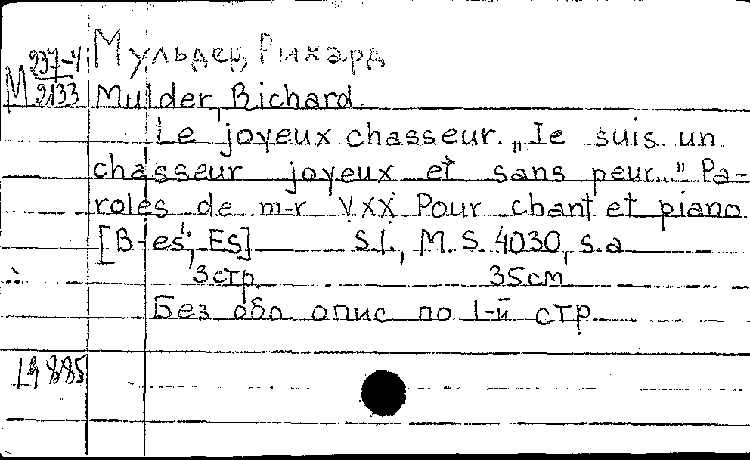 М 237-4/2133
Мульдер, Рихард
Mulder, Richard
Le joyeux chasseur. „Je suis un
chasseur joyeux et sans peur..." Pa-
roles de m-r VXX Pour chant et piano
[B-es'; Es] S.l., M. S. 4030, s.a
3стр. 35см
Без обл. опис по 1-й стр.
19885